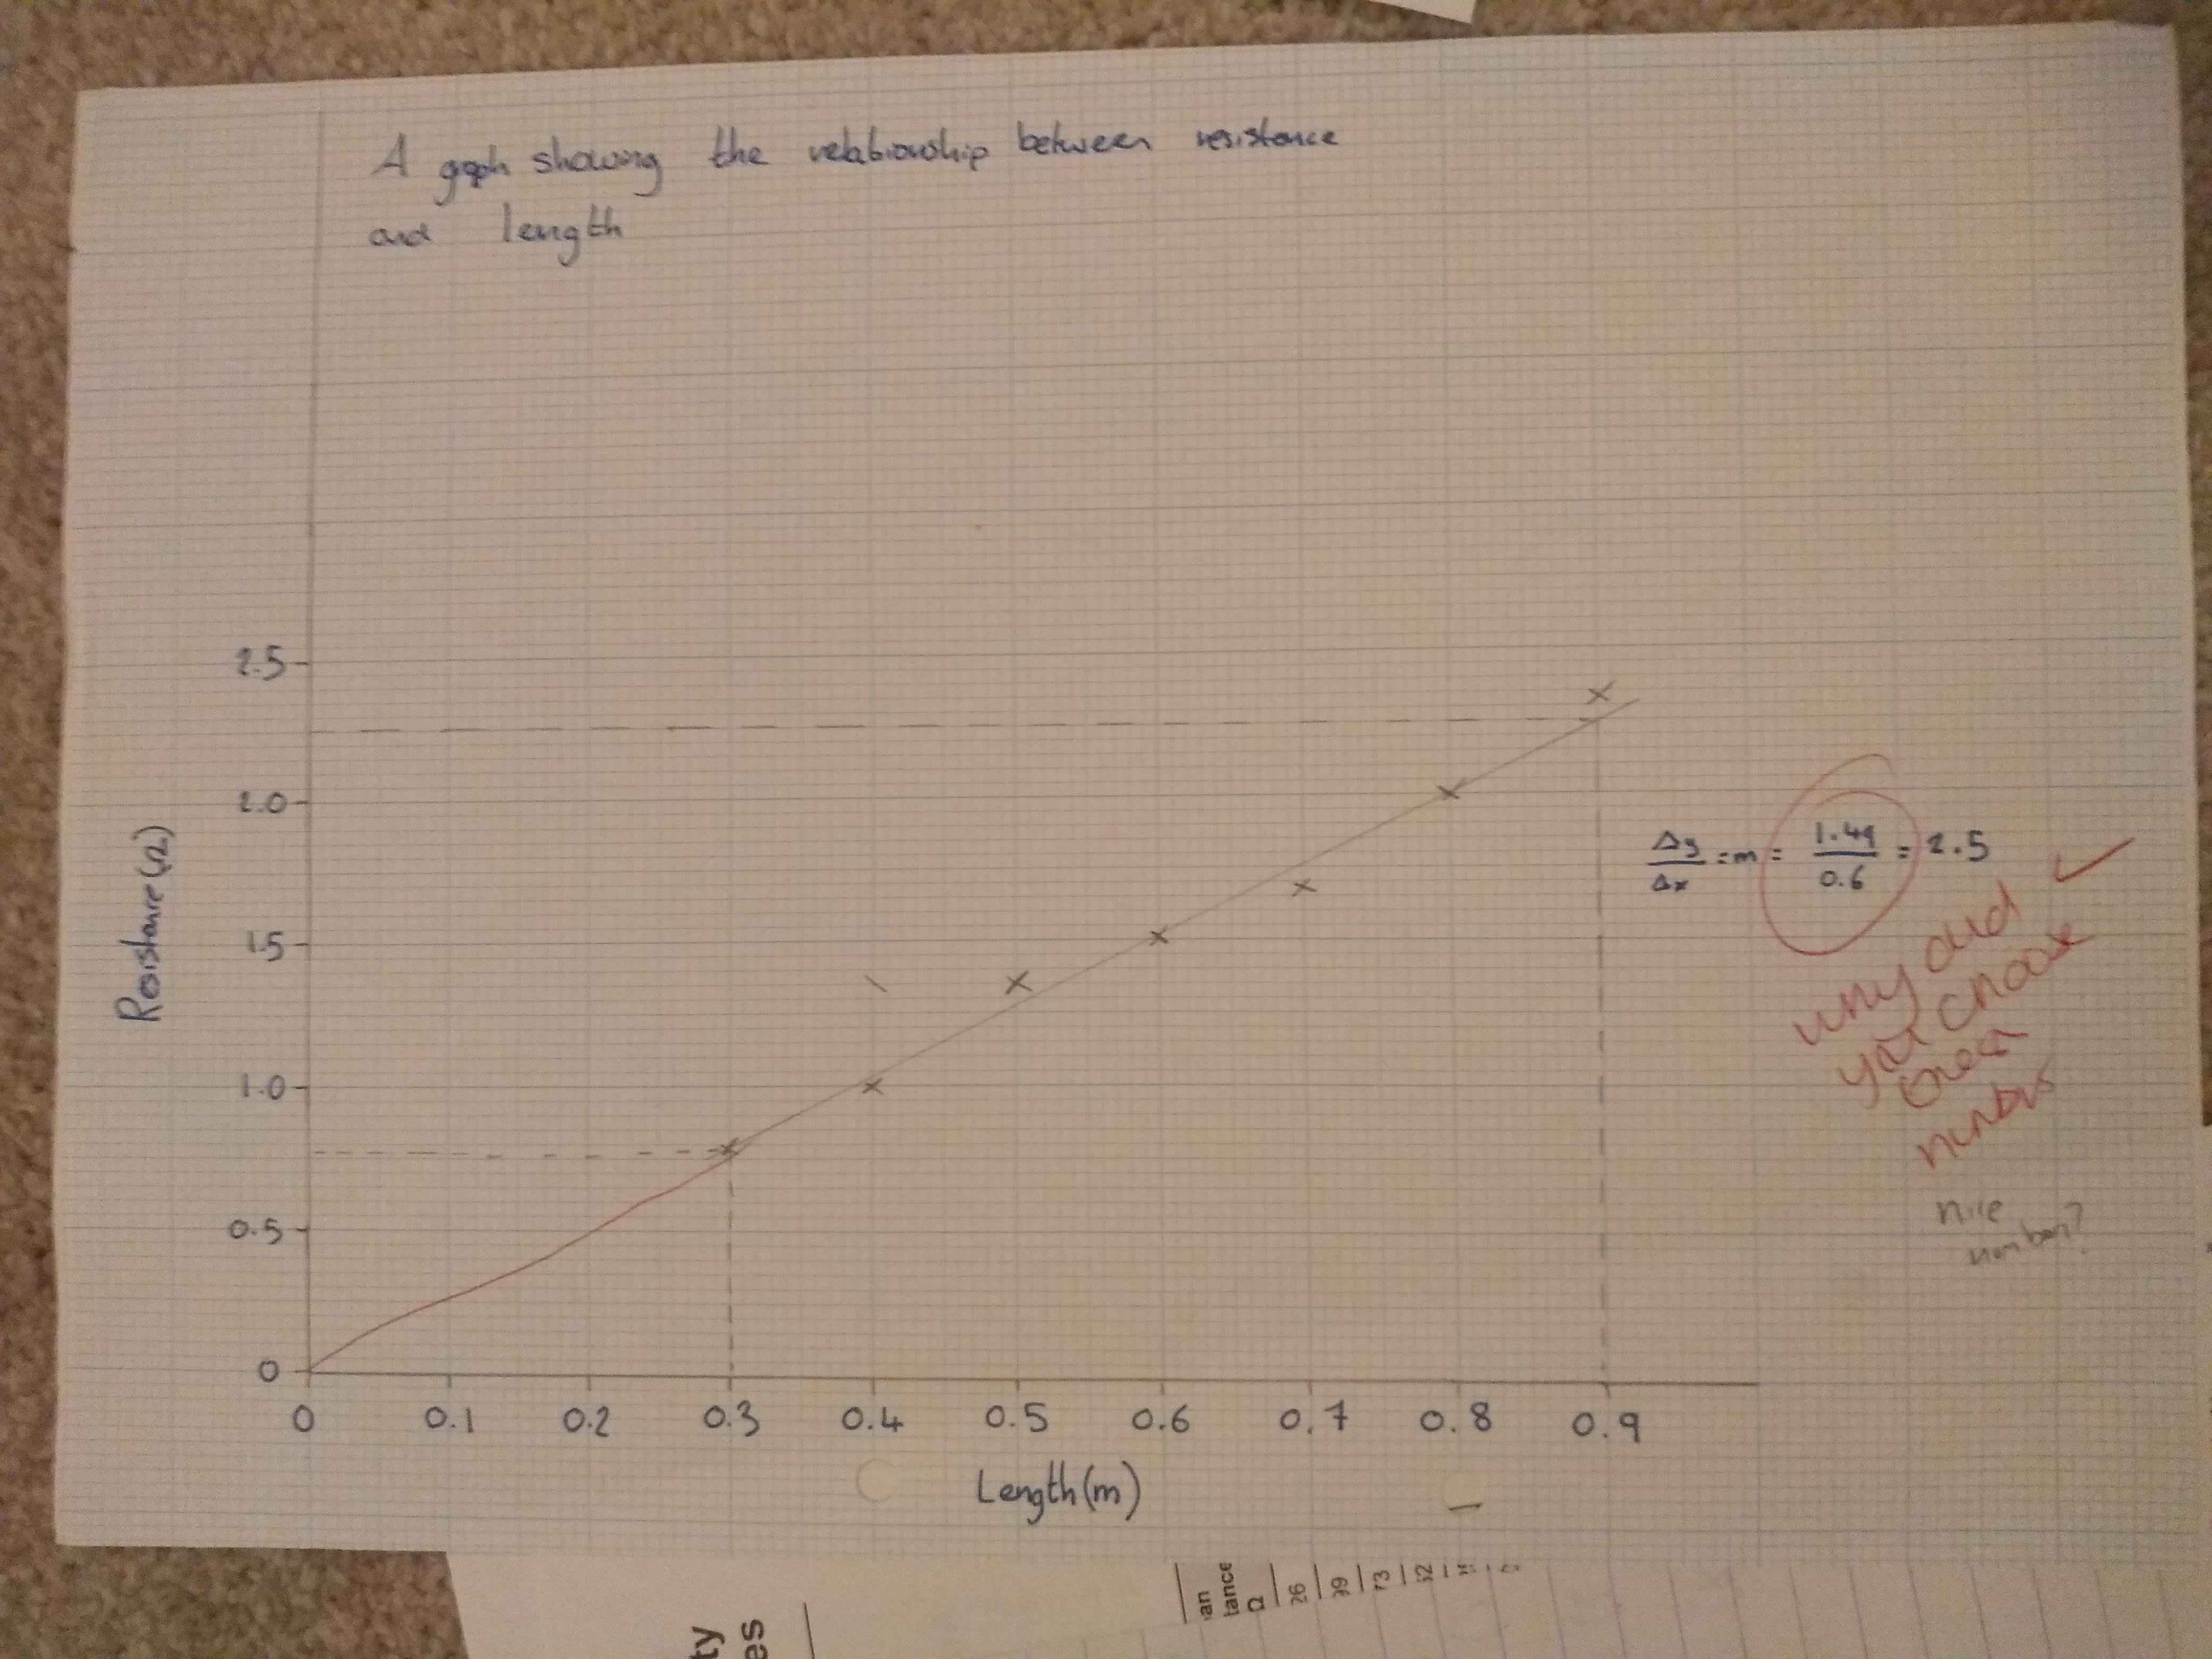 A graph showing the relationship between resistance
and length
2.5
2.0
1.5
1.0
0.5
0
Resistance (Ω)
0 0.1 0.2 0.3 0.4 0.5 0.6 0.7 0.8 0.9
Length (m)
Δy/Δx = m = 1.49/0.6 = 2.5
why did
you choose
these
numbers
nice
number?
an
tance
Ω
26
99
73
52
ty
es